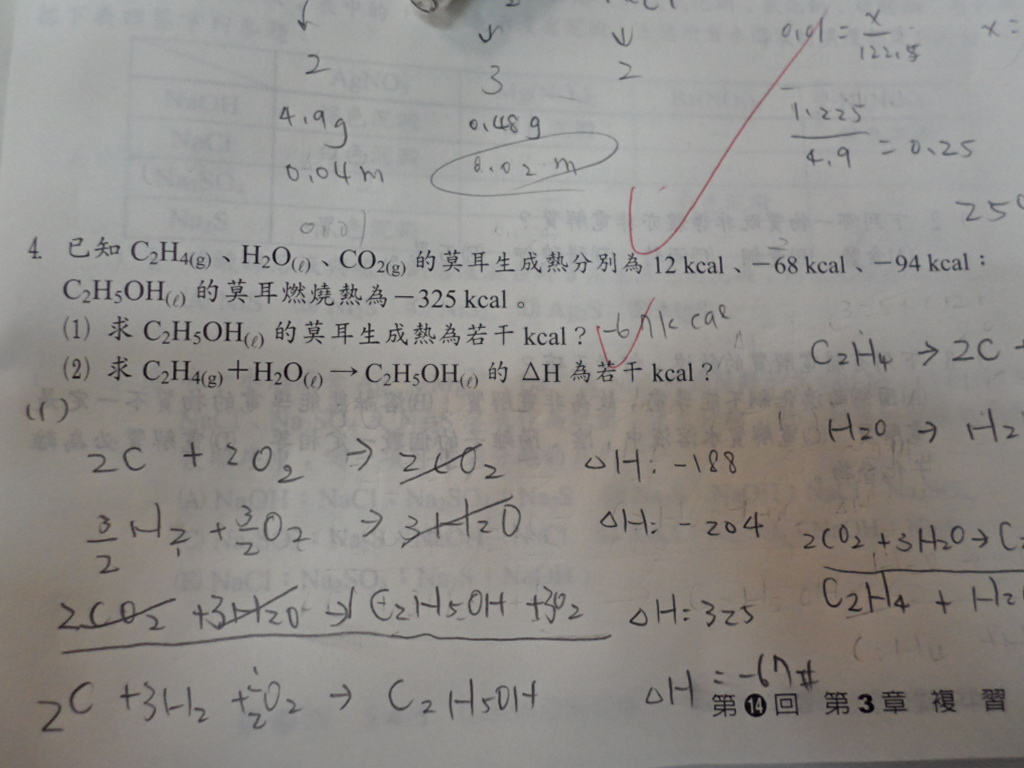 2 3 2
4.9g 0.48g
0.04m 0.02 m
0.01 = x/122.5 x =
1.225/4.9 = 0.25
250
4. 已知 C₂H₄(g)、H₂O(ℓ)、CO₂(g) 的莫耳生成熱分別為 12 kcal、−68 kcal、−94 kcal：
C₂H₅OH(ℓ) 的莫耳燃燒熱為−325 kcal。
(1) 求 C₂H₅OH(ℓ) 的莫耳生成熱為若干 kcal？ -67kcal
(2) 求 C₂H₄(g)＋H₂O(ℓ) → C₂H₅OH(ℓ) 的 ΔH 為若干 kcal？
(1)
2C + 2O₂ → 2CO₂ ΔH: -188
3/2 H₂ + 3/2 O₂ → 3H₂O ΔH: -204
2CO₂ + 3H₂O → C₂H₅OH + 3O₂ ΔH: 325
2C + 3H₂ + 1/2 O₂ → C₂H₅OH ΔH = -67#
C₂H₄ → 2C +
H₂O → H₂
2CO₂ + 3H₂O → C₂
C₂H₄ + H₂O
第 14 回 第 3 章 複習